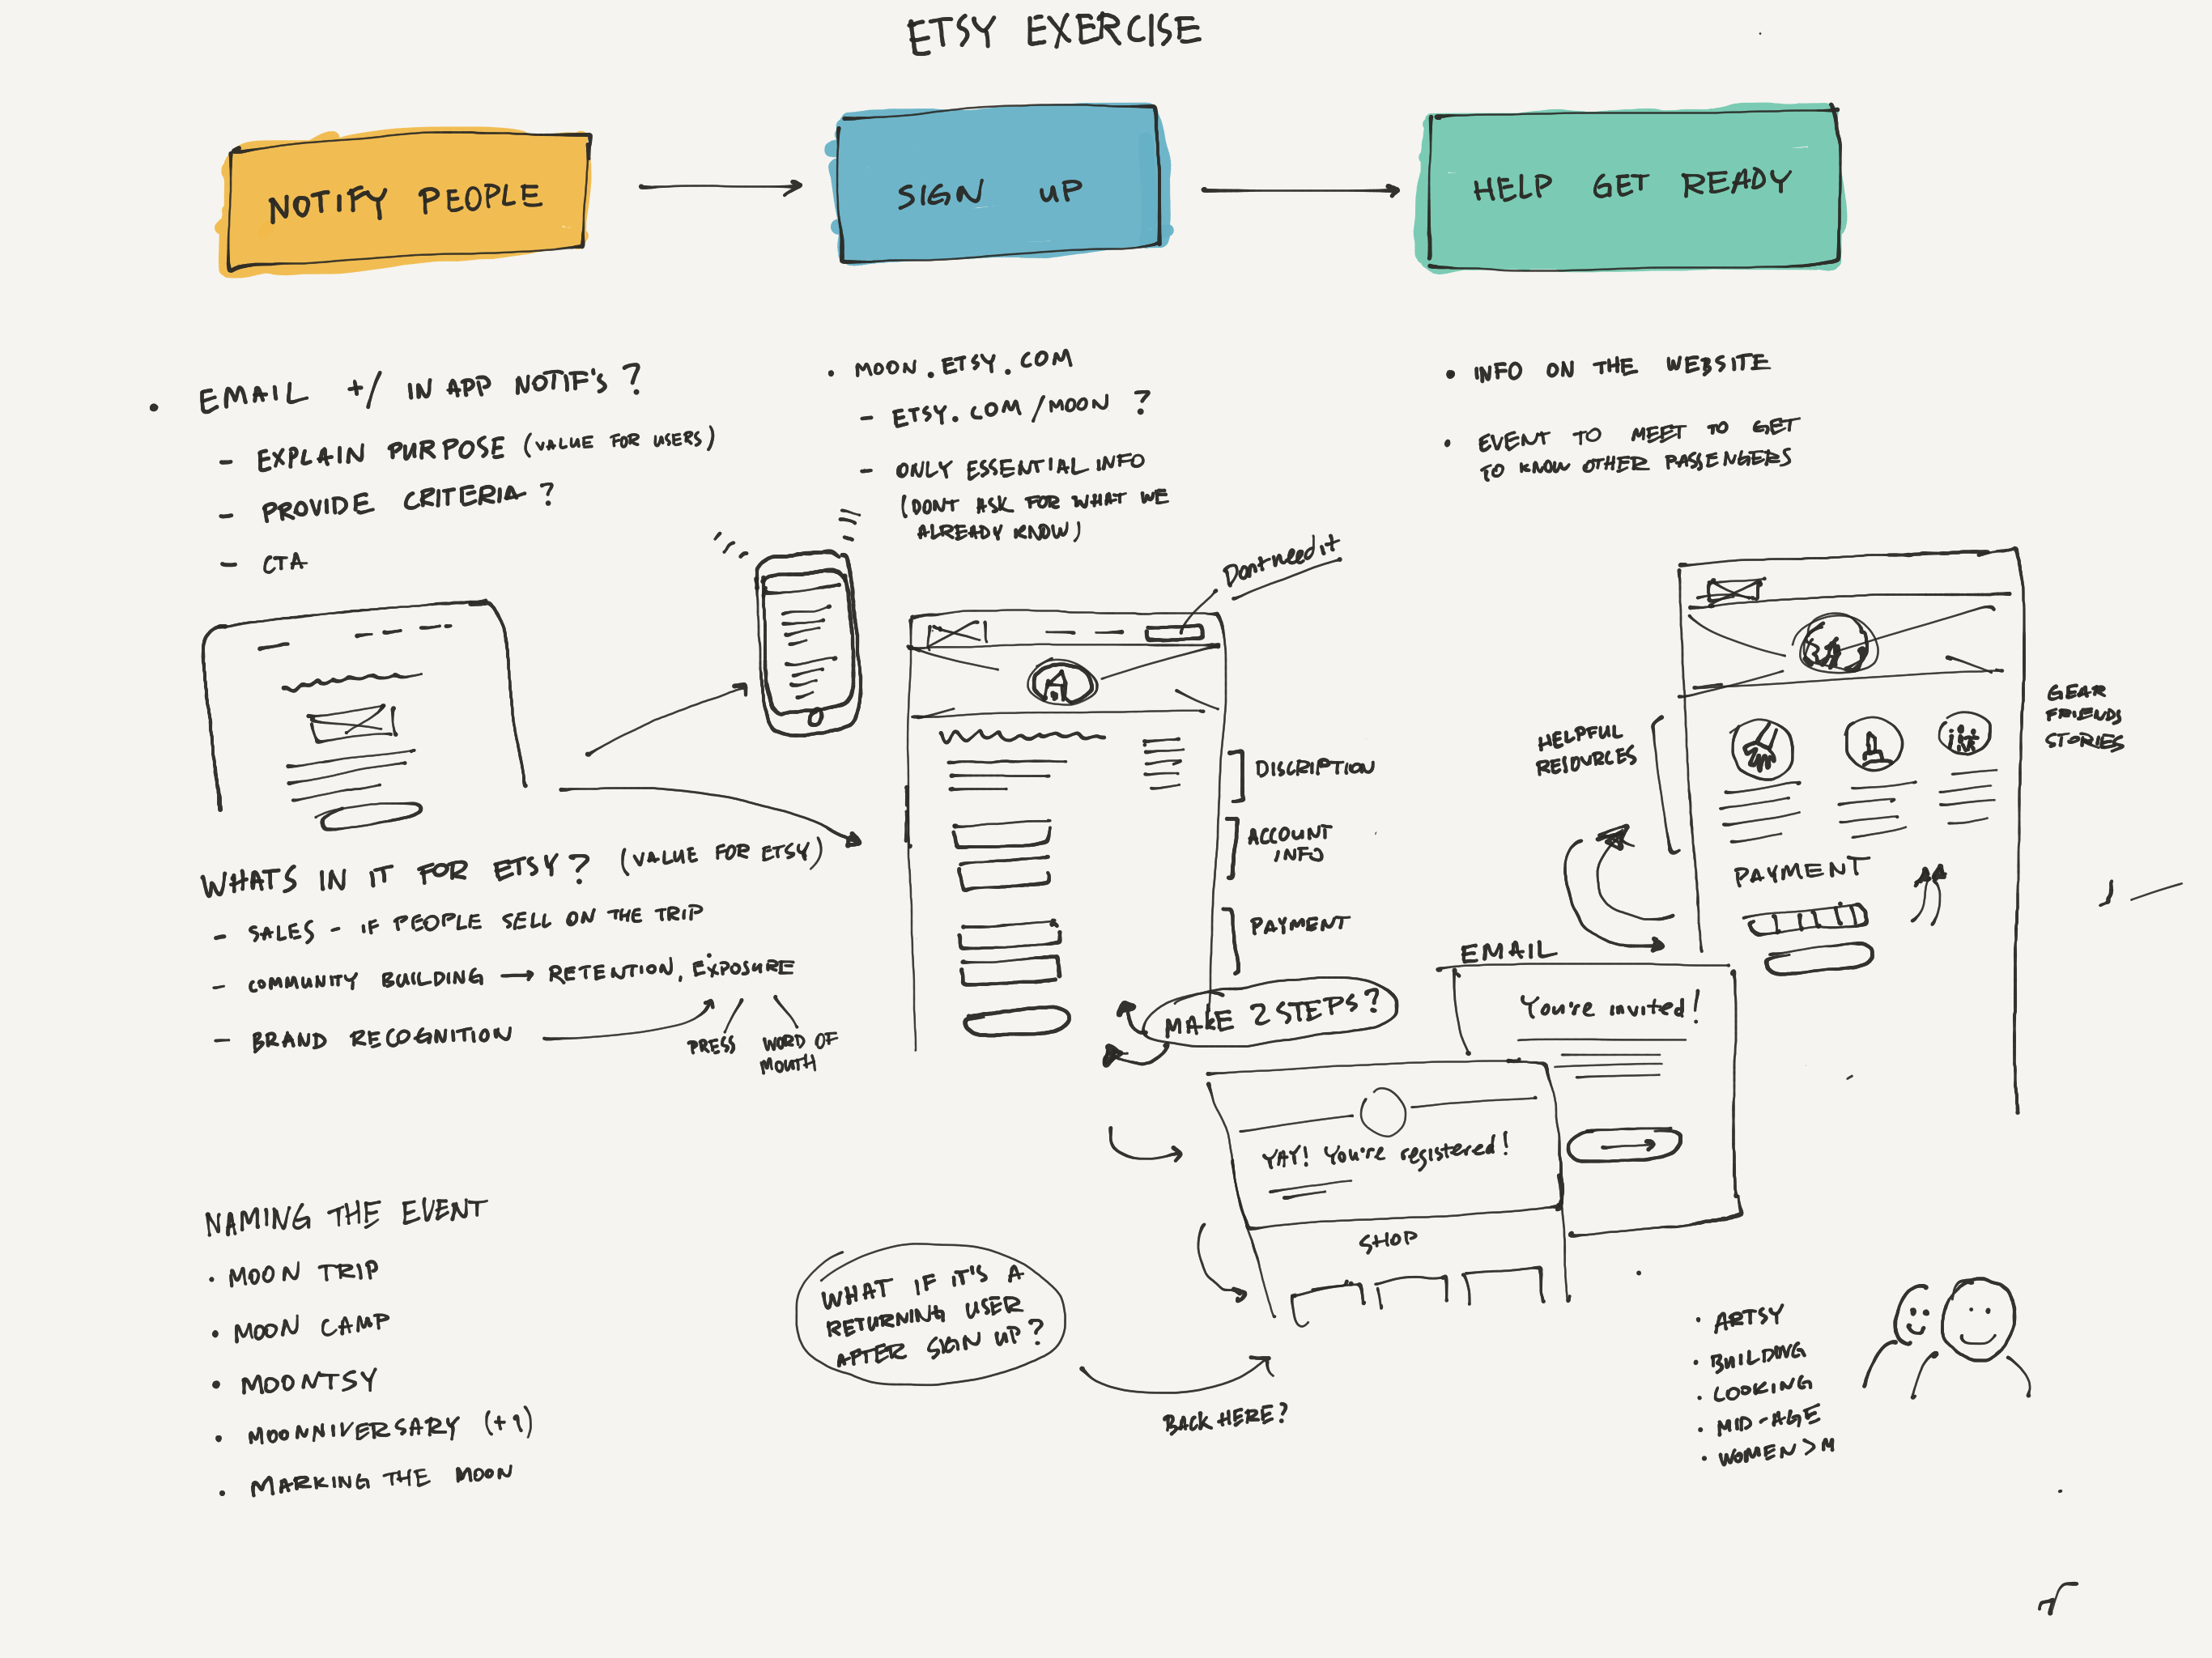 ETSY EXERCISE
NOTIFY PEOPLE
SIGN UP
HELP GET READY
• EMAIL +/ IN APP NOTIF'S ?
- EXPLAIN PURPOSE (VALUE FOR USERS)
- PROVIDE CRITERIA ?
- CTA
WHATS IN IT FOR ETSY? (VALUE FOR ETSY)
- SALES - IF PEOPLE SELL ON THE TRIP
- COMMUNITY BUILDING → RETENTION, EXPOSURE
- BRAND RECOGNITION
PRESS
WORD OF
MOUTH
NAMING THE EVENT
• MOON TRIP
• MOON CAMP
• MOONTSY
• MOONNIVERSARY (+1)
• MARKING THE MOON
• MOON.ETSY.COM
- ETSY.COM/MOON ?
- ONLY ESSENTIAL INFO
(DONT ASK FOR WHAT WE
ALREADY KNOW)
Dont need it
DISCRIPTION
ACCOUNT
INFO
PAYMENT
MAKE 2 STEPS?
YAY! You're registered!
SHOP
WHAT IF IT'S A
RETURNING USER
AFTER SIGN UP?
BACK HERE?
• INFO ON THE WEBSITE
• EVENT TO MEET TO GET
TO KNOW OTHER PASSENGERS
HELPFUL
RESOURCES
GEAR
FRIENDS
STORIES
PAYMENT
EMAIL
You're invited!
• ARTSY
• BUILDING
• LOOKING
• MID-AGE
• WOMEN > M